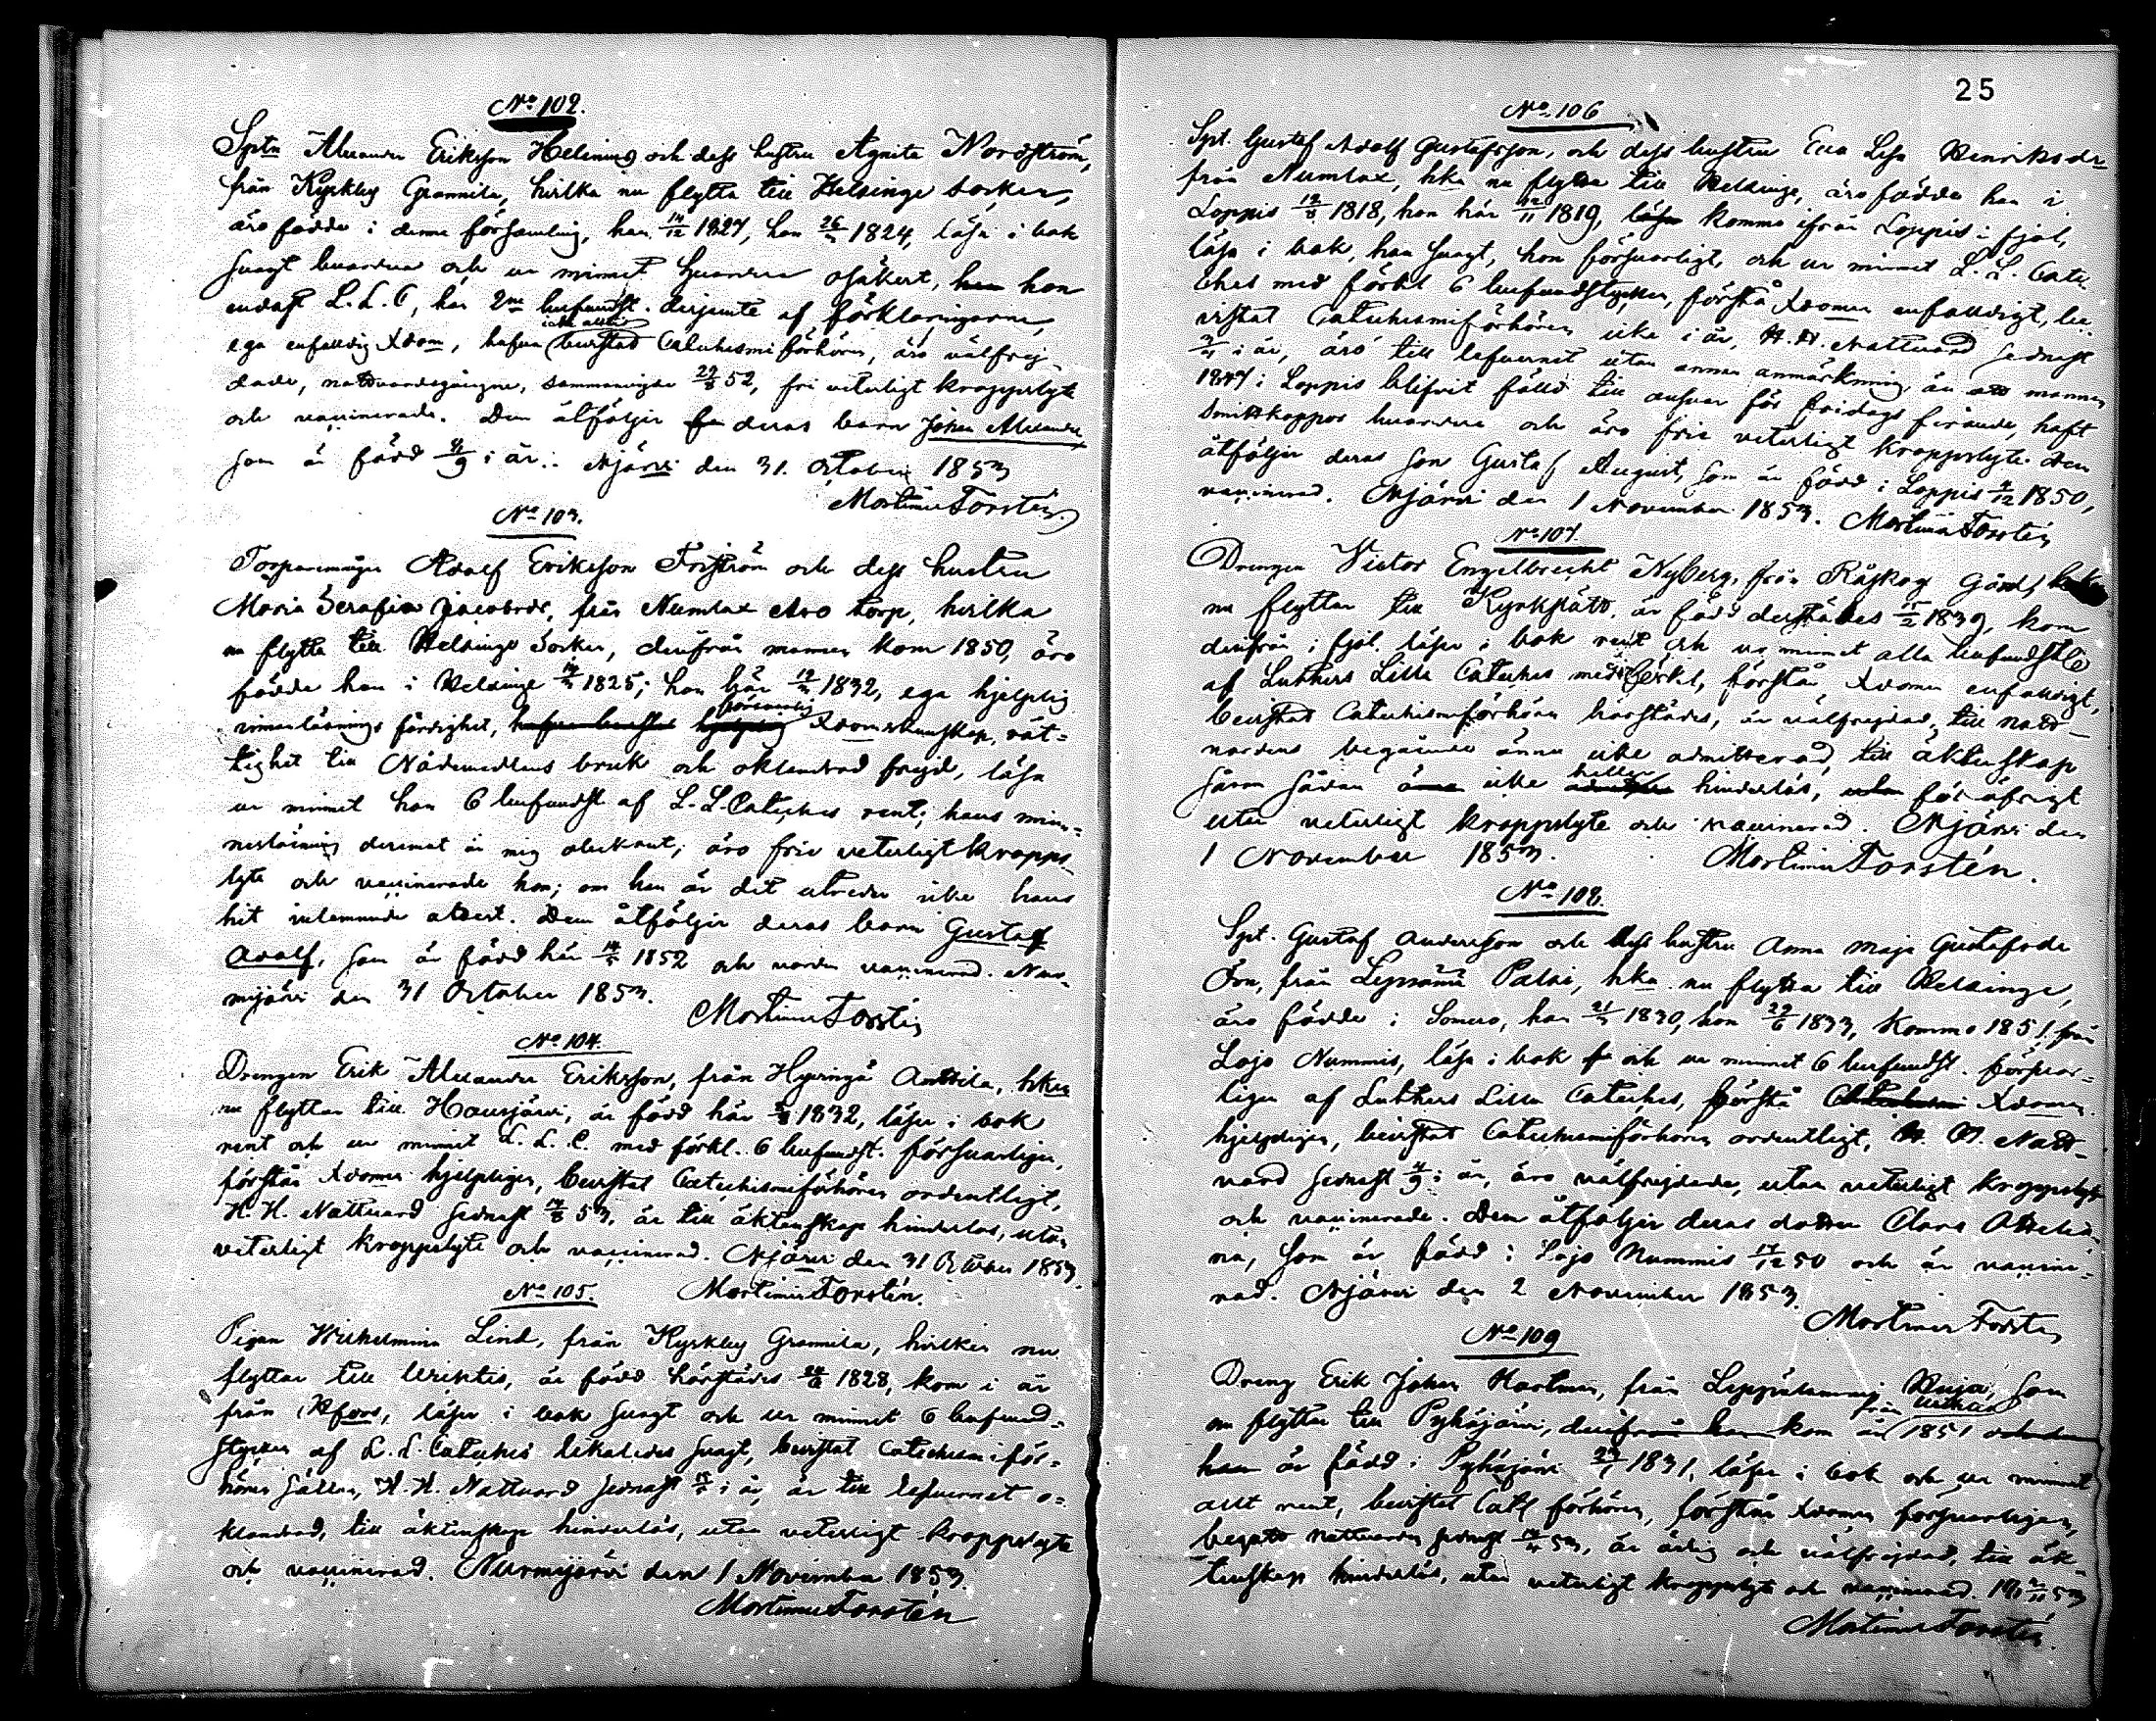 No 102.
Sptn Alexander Eriksson Helenius och dess hustru Agnita Nordström,
från Kyrkby Grannila, hvilka nu flytta till Helsinge socken,
äro födde i denna församling, han 14/12 1827, hon 26/7 1824, läsa i bok
svagt hvardera och ur minnet hvardera osäkert, hon
endast L. L. C, han 2ne hufvudst. derjemte af förklaringarne,
icke alltid
ega enfaldig Xdom, hafva bevistat Catechismi förhören, äro välfrej-
dade, nattvardsgångne, sammanvigde 29/8 52, fri veterligt kroppslyte
och vaccinerade. Dem åtföljer deras barn Johan Alexander
som är född 4/9 i år. Njärvi den 31. October 1853
Mortimer Forstén.
No 103.
Torparemågen Adolf Eriksson Friström och dess hustru
Maria Serafia Jacobsdr, från Numlax Aro torp, hvilka
nu flytta till Helsinge Socken, derifrån mannen kom 1850, äro
födde han i Helsinge 1825; hon här 1832, ega hjelplig
försvarlig
innanläsnings färdighet, hafva bevistat hjelplig Xdomskunskap, rät-
tighet till Nådemedlens bruk och oklandrad frejd, läsa
ur minnet hon 6 hufvudst af L. L. Cateches rent; hans min-
nesläsning deremot är mig obekant; äro frie veterligt kropps-
lyte och vaccinerade hon; om han är det utreder icke hans
hit inlemnade attest. Dem åtföljer deras barn Gustaf
Adolf, som är född här 1852 och vorden vaccinerad. Nur-
mijärvi den 31 October 1853.
Mortimer Forstén
No 104.
Drengen Erik Alexander Eriksson, från Hyvinge Anttila, hken
nu flyttar till Hausjärvi, är född här 1832, läser i bok
rent och ur minnet L. L. C. med förkl. 6 hufvudst. försvarligen,
förstår Xdomen hjelpligen, bevistat Catechismiförhören ordentligt,
H. H. Nattvard sednast 53, är till äktenskap hinderlös, utan
veterligt kroppslyte och vaccinerad. Njärvi den 31 October 1853.
No 105. Mortimer Forstén.
Pigan Wilhelmina Lind, från Kyrkby Grannila, hvilken nu
flyttar till Wichtis, är född härstädes 24/6 1828, kom i år
från Hfors, läser i bok svagt och ur minnet 6 hufvud-
stycken af L. L. Catechis likaledes svagt, bevistat Catechismiför-
hören sällan, H. H. Nattvard sednast i år, är till lefvernet o-
klandrad, till äktenskap hinderlös, utan veterligt kroppslyte
och vaccinerad. Nurmijärvi den 1 November 1853.
Mortimer Forstén
25
No 106
Spt. Gustaf Adolf Gustafsson, och dess hustru Eva Lisa Henriksdr
från Numlax, hka nu flytta till Helsinge, äro födde han i
Loppis 1818, hon här 1819, läsa komne ifrån Loppis i fjol,
läsa i bok, han svagt, hon försvarligt, och ur minnet L. L. Cate-
ches med förkl 6 hufvudstycken, förstå Xdomen enfaldigt, be-
vistat Catechismiförhören icke i år, H. H. Nattvard sednast
i år, äro till lefvernet utan annan anmärkning än att mannen
1847 i Loppis blifvit fälld till ansvar för fridags firande, haft
smittkoppor hvardera och äro frie veterligt kroppslyte. Dem
åtföljer deras son Gustaf August, som är född i Loppis 4/12 1850,
vaccinerad. Njärvi den 1 November 1853. Mortimer Forstén
No 107.
Drengen Victor Engelbrecht Nyberg, från Råskog Gård,
nu flyttar till Kyrkslätt, är född derstädes 15/2 1839, kom
derifrån i fjol. läser i bok rent och ur minnet alla hufvudst
af Luthers Lilla Catches med förkl, förstår Xdomen enfaldigt,
bevistat Catechismiförhören härstädes, är välfrejdad, till natt-
vardens begående ännu icke admitterad, till äktenskap
heller
såsom sådan icke hinderlös, för öfrigt
utan veterligt kroppslyte och vaccinerad. Njärvi den
1 November 1853. Mortimer Forstén.
No 108.
Spt. Gustaf Andersson och dess hustru Anna Maja Gustafsdr
Örn, från Lepsämä Palvi, hka nu flytta till Helsinge,
äro födde i Somero, han 1830, hon 29/6 1833, komne 1851 från
Lojo Nummis, läsa i bok och ur minnet 6 hufvudst. försvar-
ligen af Luthers Lilla Cateches, förstå Xdomen
hjelpligen, bevistat Catechismiförhören ordentligt, H. H. Natt-
vard sednast 4/9 i år, äro välfrejdade, utan veterligt kroppslyte
och vaccinerade. Dem åtföljer deras dotter Clara Otteli-
na, som är född i Lojo Nummis 17/12 50 och är vaccine-
rad. Njärvi den 2 November 1853.
Mortimer Forstén
No 109
Dreng Erik Johan Hartman, från Leppälammi Kuja, som
från
nu flyttar till Pyhäjärvi, derifrån han kom år 1851
är född i Pyhäjärvi 1831, läser i bok och ur minnet
allt rent, bevistat Cat förhören, förstår Xdomen försvarligen,
begått nattvarden sednast 53, är ärlig och välfrejdad, till äk-
tenskap hinderlös, utan veterligt kroppslyte och vaccinerad. Nj 53
Mortimer Forstén.